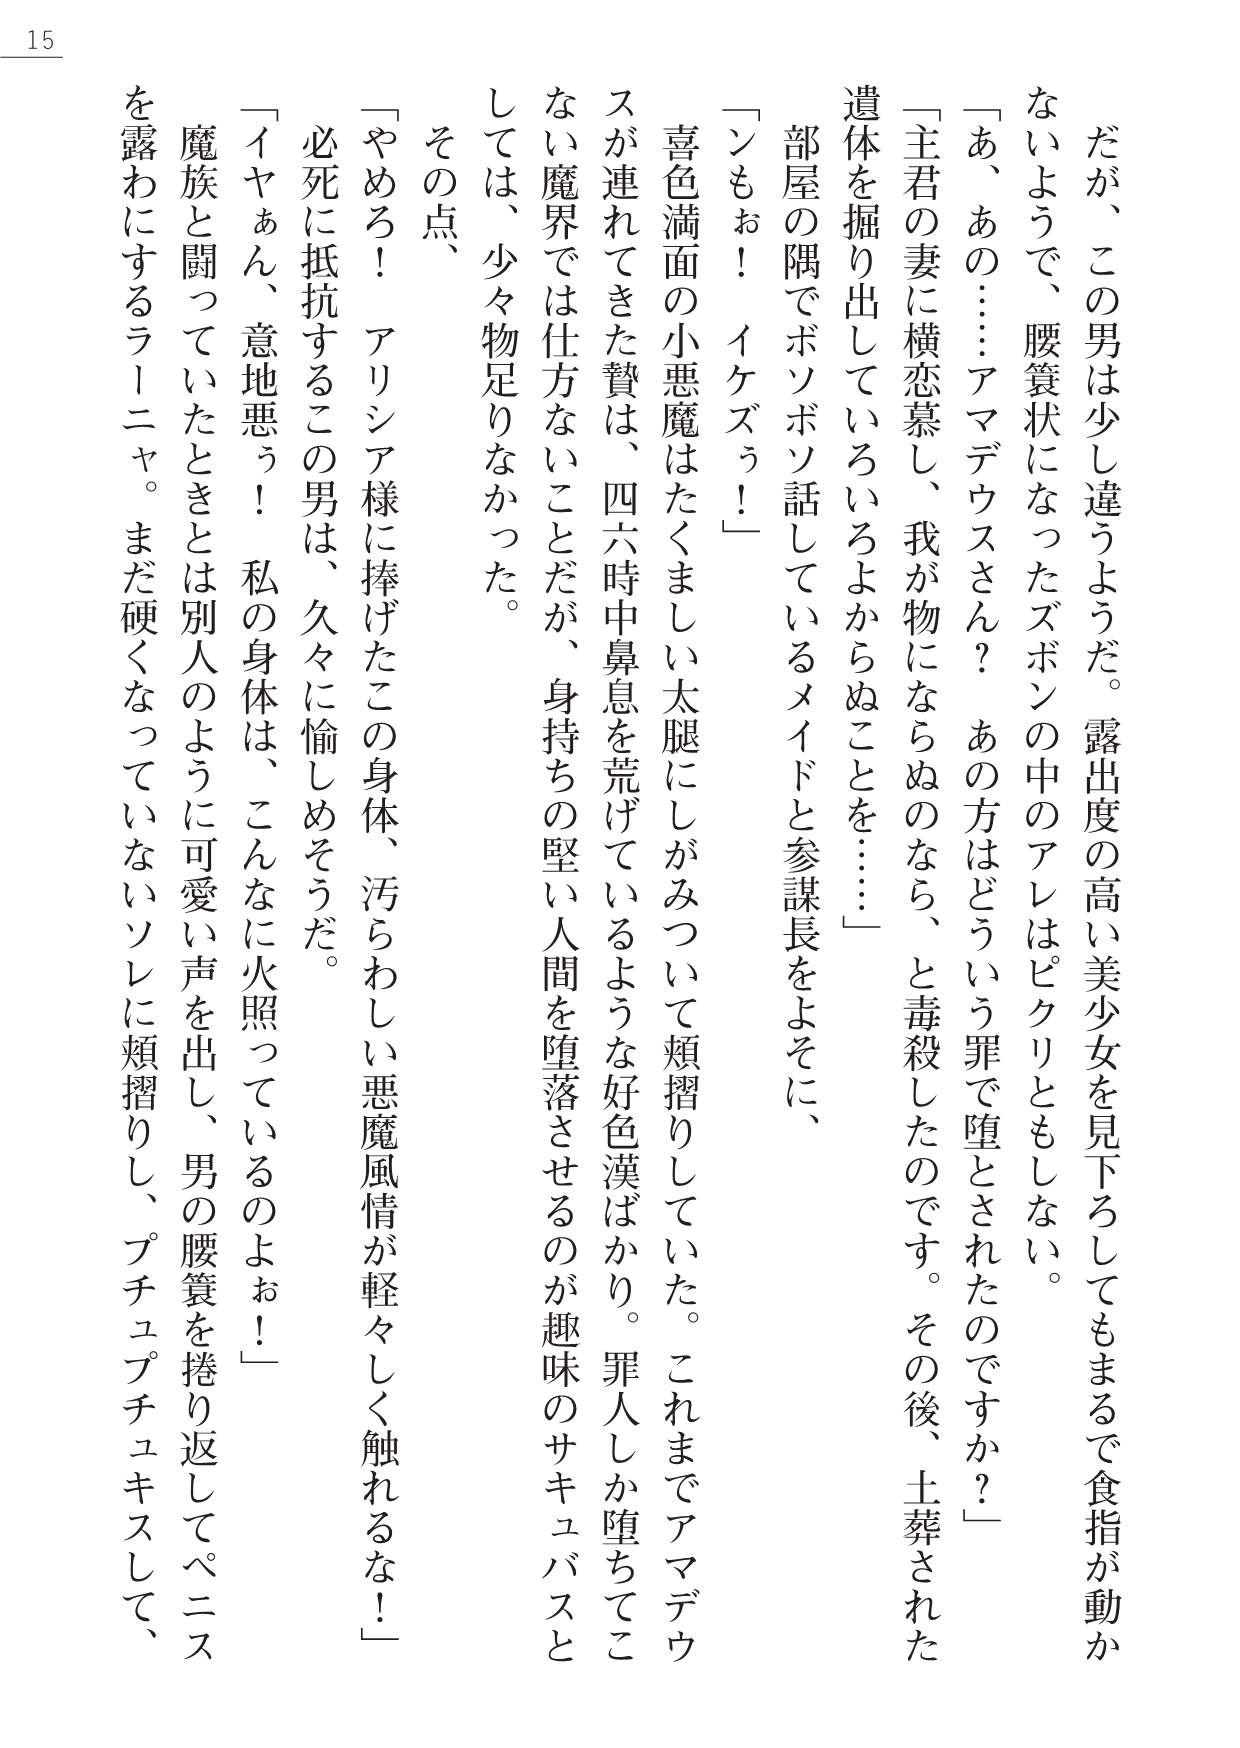 15
だが、この男は少し違うようだ。露出度の高い美少女を見下ろしてもまるで食指が動か
ないようで、腰簑状になったズボンの中のアレはピクリともしない。
「あ、あの……アマデウスさん？　あの方はどういう罪で堕とされたのですか？」
「主君の妻に横恋慕し、我が物にならぬのなら、と毒殺したのです。その後、土葬された
遺体を掘り出していろいろよからぬことを……」
部屋の隅でボソボソ話しているメイドと参謀長をよそに、
「ンもぉ！　イケズぅ！」
喜色満面の小悪魔はたくましい太腿にしがみついて頬摺りしていた。これまでアマデウ
スが連れてきた贄は、四六時中鼻息を荒げているような好色漢ばかり。罪人しか堕ちてこ
ない魔界では仕方ないことだが、身持ちの堅い人間を堕落させるのが趣味のサキュバスと
しては、少々物足りなかった。
その点、
「やめろ！　アリシア様に捧げたこの身体、汚らわしい悪魔風情が軽々しく触れるな！」
必死に抵抗するこの男は、久々に愉しめそうだ。
「イヤぁん、意地悪ぅ！　私の身体は、こんなに火照っているのよぉ！」
魔族と闘っていたときとは別人のように可愛い声を出し、男の腰簑を捲り返してペニス
を露わにするラーニャ。まだ硬くなっていないソレに頬摺りし、プチュプチュキスして、